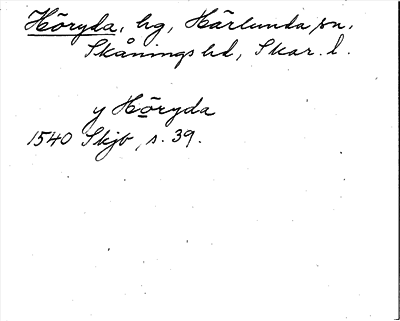 Höryda, hg, Härlunda sn.
Skånings hd, Skar. l.
y Höryda
1540 Skjb, s. 39.